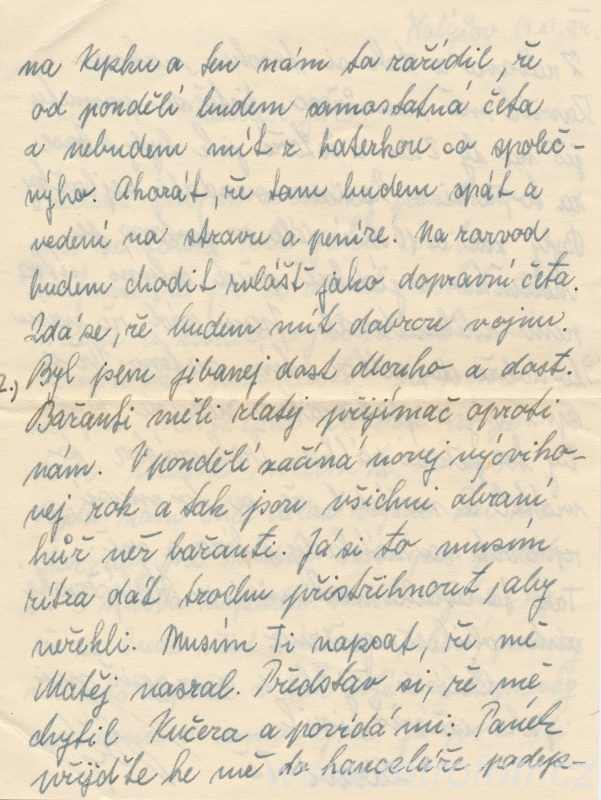 na Kepku a ten nám to zařídil, že
od pondělí budem samostatná četa
a nebudem mít z baterkou co společ-
nýho. Akorát, že tam budem spát a
vedení na stravu a peníze. Na rozvod
budem chodit zvlášť jako dopravní četa.
Zdá se, že budem mít dobrou vojnu.
2.) Byl jsem jibanej dost dlouho a dost.
Bažanti měli zlatej přijímač oproti
nám. V pondělí začíná novej výcviko-
vej rok a tak jsou všichni obraní
hůř než bažanti. Já si to musím
zítra dát trochu přistřihnout, aby
neřekli. Musím Ti napsat, že mě
Matěj nasral. Představ si, že mě
chytil Kučera a povídá mi: Panék
přijďte ke mě do kanceláře podep-